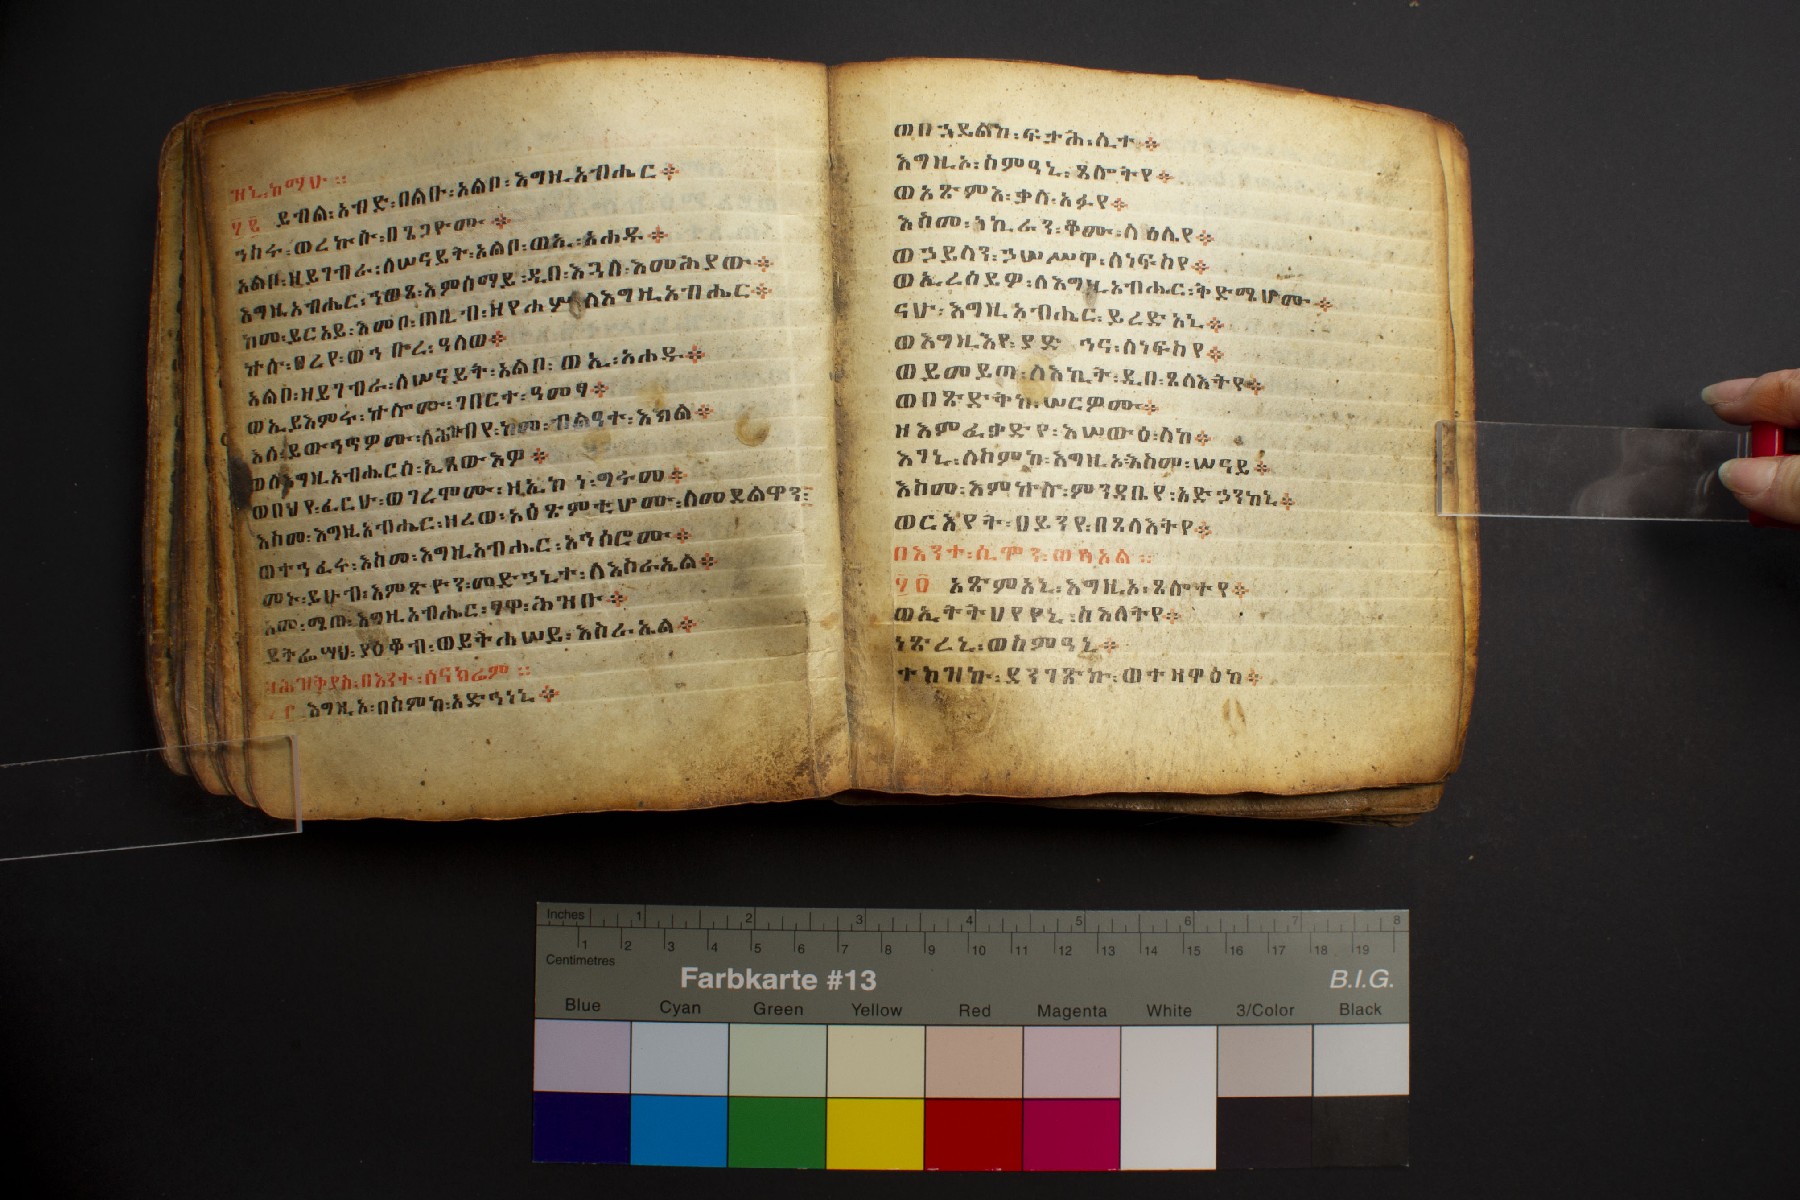 ዝኒ፡ከማሁ ፡፡
፶፪ ይብል፡አብድ፡በልቡ፡አልቦ፡እግዚአብሔር፨
ኀስሩ፡ወረኵሱ፡በጌጋዮሙ፨
አልቦ፡ዘይገብራ፡ለሠናይት፡አልቦ፡ወኢ፡አሐዱ፨
እግዚአብሔር፡ኀወጸ፡እምሰማይ፡ዲበ፡እጓለ፡እመሕያው፨
ከመ፡ይርአይ፡እመቦ፡ጠቢብ፡ዘየሐሦ፡ለእግዚአብሔር፨
ኵሉ፡ዐረየ፡ወኀቡረ፡ዓለወ፨
አልቦ፡ዘይገብራ፡ለሠናይት፡አልቦ፡ወኢ፡አሐዱ፨
ወኢይእምሩ፡ኵሎሙ፡ገበርተ፡ዓመፃ፨
እለ፡ይውኅጥዎሙ፡ለሕዝብየ፡ከመ፡ብልዓተ፡እክል፨
ወለእግዚአብሔርሰ፡ኢጸውእዎ፨
ወበህየ፡ፈርሁ፡ወገረሞሙ፡ዘኢኮነ፡ግሩመ፨
እስመ፡እግዚአብሔር፡ዘረወ፡አዕጽምቲሆሙ፡ለመደልዋን፡
ወተኀፈሩ፡እስመ፡እግዚአብሔር፡አኅሰሮሙ፨
መኑ፡ይሁብ፡እምጽዮን፡መድኃኒተ፡ለእስራኤል፨
አመ፡ሜጠ፡እግዚአብሔር፡ፃዋ፡ሕዝቡ፨
ይትፌሣህ፡ያዕቆብ፡ወይትሐሠይ፡እስራኤል፨
ዘሕዝቅያስ፡በእንተ፡ሰናክሬም ፡፡
እግዚኦ፡በስምከ፡አድኅነኒ፨
ወበኃይልከ፡ፍታሕ፡ሊተ፨
እግዚኦ፡ስምዓኒ፡ጸሎትየ፨
ወአጽምእ፡ቃለ፡አፉየ፨
እስመ፡ነኪራን፡ቆሙ፡ላዕሌየ፨
ወኃያላን፡ኃሠሥዋ፡ለነፍስየ፨
ወኢረሰይዎ፡ለእግዚአብሔር፡ቅድሜሆሙ፨
ናሁ፡እግዚአብሔር፡ይረድአኒ፨
ወእግዚእየ፡ያድኅና፡ለነፍስየ፨
ወይመይጣ፡ለእኪት፡ዲበ፡ጸላእትየ፨
ወበጽድቅከ፡ሠርዎሙ፨
ዘእምፈቃድየ፡እሠውዕ፡ለከ፨
እገኒ፡ለስምከ፡እግዚኦ፡እስመ፡ሠናይ፨
እስመ፡እምኵሉ፡ምንዳቤየ፡አድኃንከኒ፨
ወርእየት፡ዐይንየ፡በጸላእትየ፨
በእንተ፡ሲሞን፡ወካአል ፡፡
፶፬ አጽምአኒ፡እግዚኦ፡ጸሎትየ፨
ወኢትትሀየየኒ፡ስእለትየ፨
ነጽረኒ፡ወስምዓኒ፨
ተከዝኩ፡ደንገጽኩ፡ወተዛዋዕከ፨
Inches 1 2 3 4 5 6 7 8
1 2 3 4 5 6 7 8 9 10 11 12 13 14 15 16 17 18 19
Centimetres
Farbkarte #13 B.I.G.
Blue Cyan Green Yellow Red Magenta White 3/Color Black